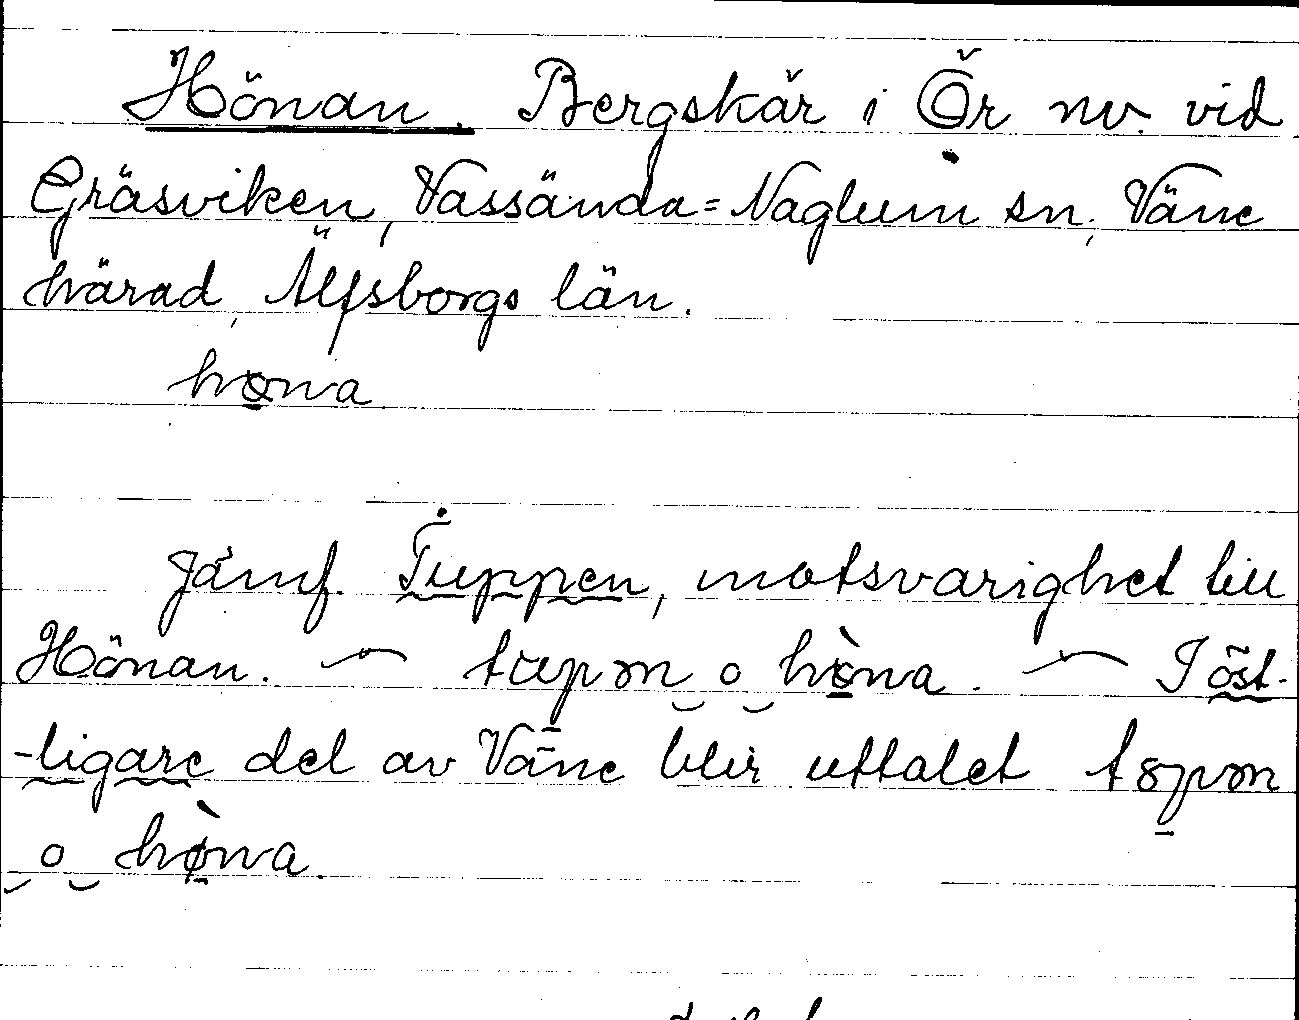 Hönan. Bergskär i Ör nv. vid
Gräsviken, Vassända=Naglum sn, Väne
härad, Älfsborgs län.
høna
Jämf. Tuppen, motsvarighet till
Hönan. — o hø̀na. — I öst-
-ligare del av Väne blir uttalet
o hø̀na.